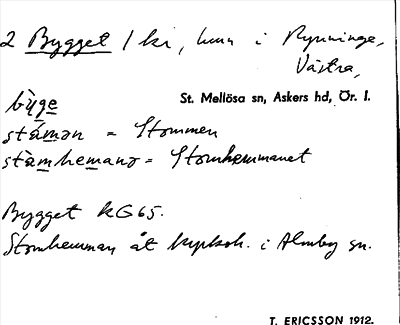 2 Bygget 1 kr, hmn i Rynninge,
Västra,
St. Mellösa sn, Askers hd, Ör. l.
by̆ge
stámən = Stommen
stàmhemanə = Stomhemmanet
Bygget KG65.
Stomhemman åt kyrkoh. i Almby sn.
T. ERICSSON 1912.